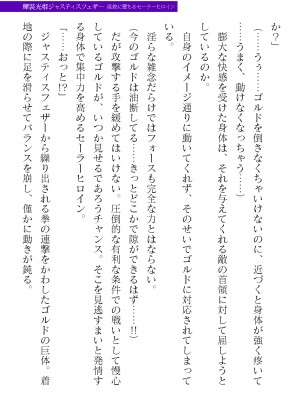 輝装光姫ジャスティスフェザー 淫欲に堕ちるセーラーヒロイン
か？」
（……うぅ……ゴルドを倒さなくちゃいけないのに、近づくと身体が強く疼いて
……うまく、動けなくなっちゃう……）
膨大な快感を受けた身体は、それを与えてくれる敵の首領に対して屈しようと
しているのか。
自身のイメージ通りに動いてくれず、そのせいでゴルドに対応されてしまって
いる。
淫らな雑念だらけではフォースも完全な力とはならない。
（今のゴルドは油断してる……きっとどこかで隙ができるはず……!!）
だが攻撃する手を緩めてはいけない。圧倒的な有利な条件での戦いとして慢心
しているゴルドが、いつか見せるであろうチャンス。そこを見逃すまいと発情す
る身体で集中力を高めるセーラーヒロイン。
「……おっと!?」
ジャスティスフェザーから繰り出される拳の連撃をかわしたゴルドの巨体。着
地の際に足を滑らせてバランスを崩し、僅かに動きが鈍る。